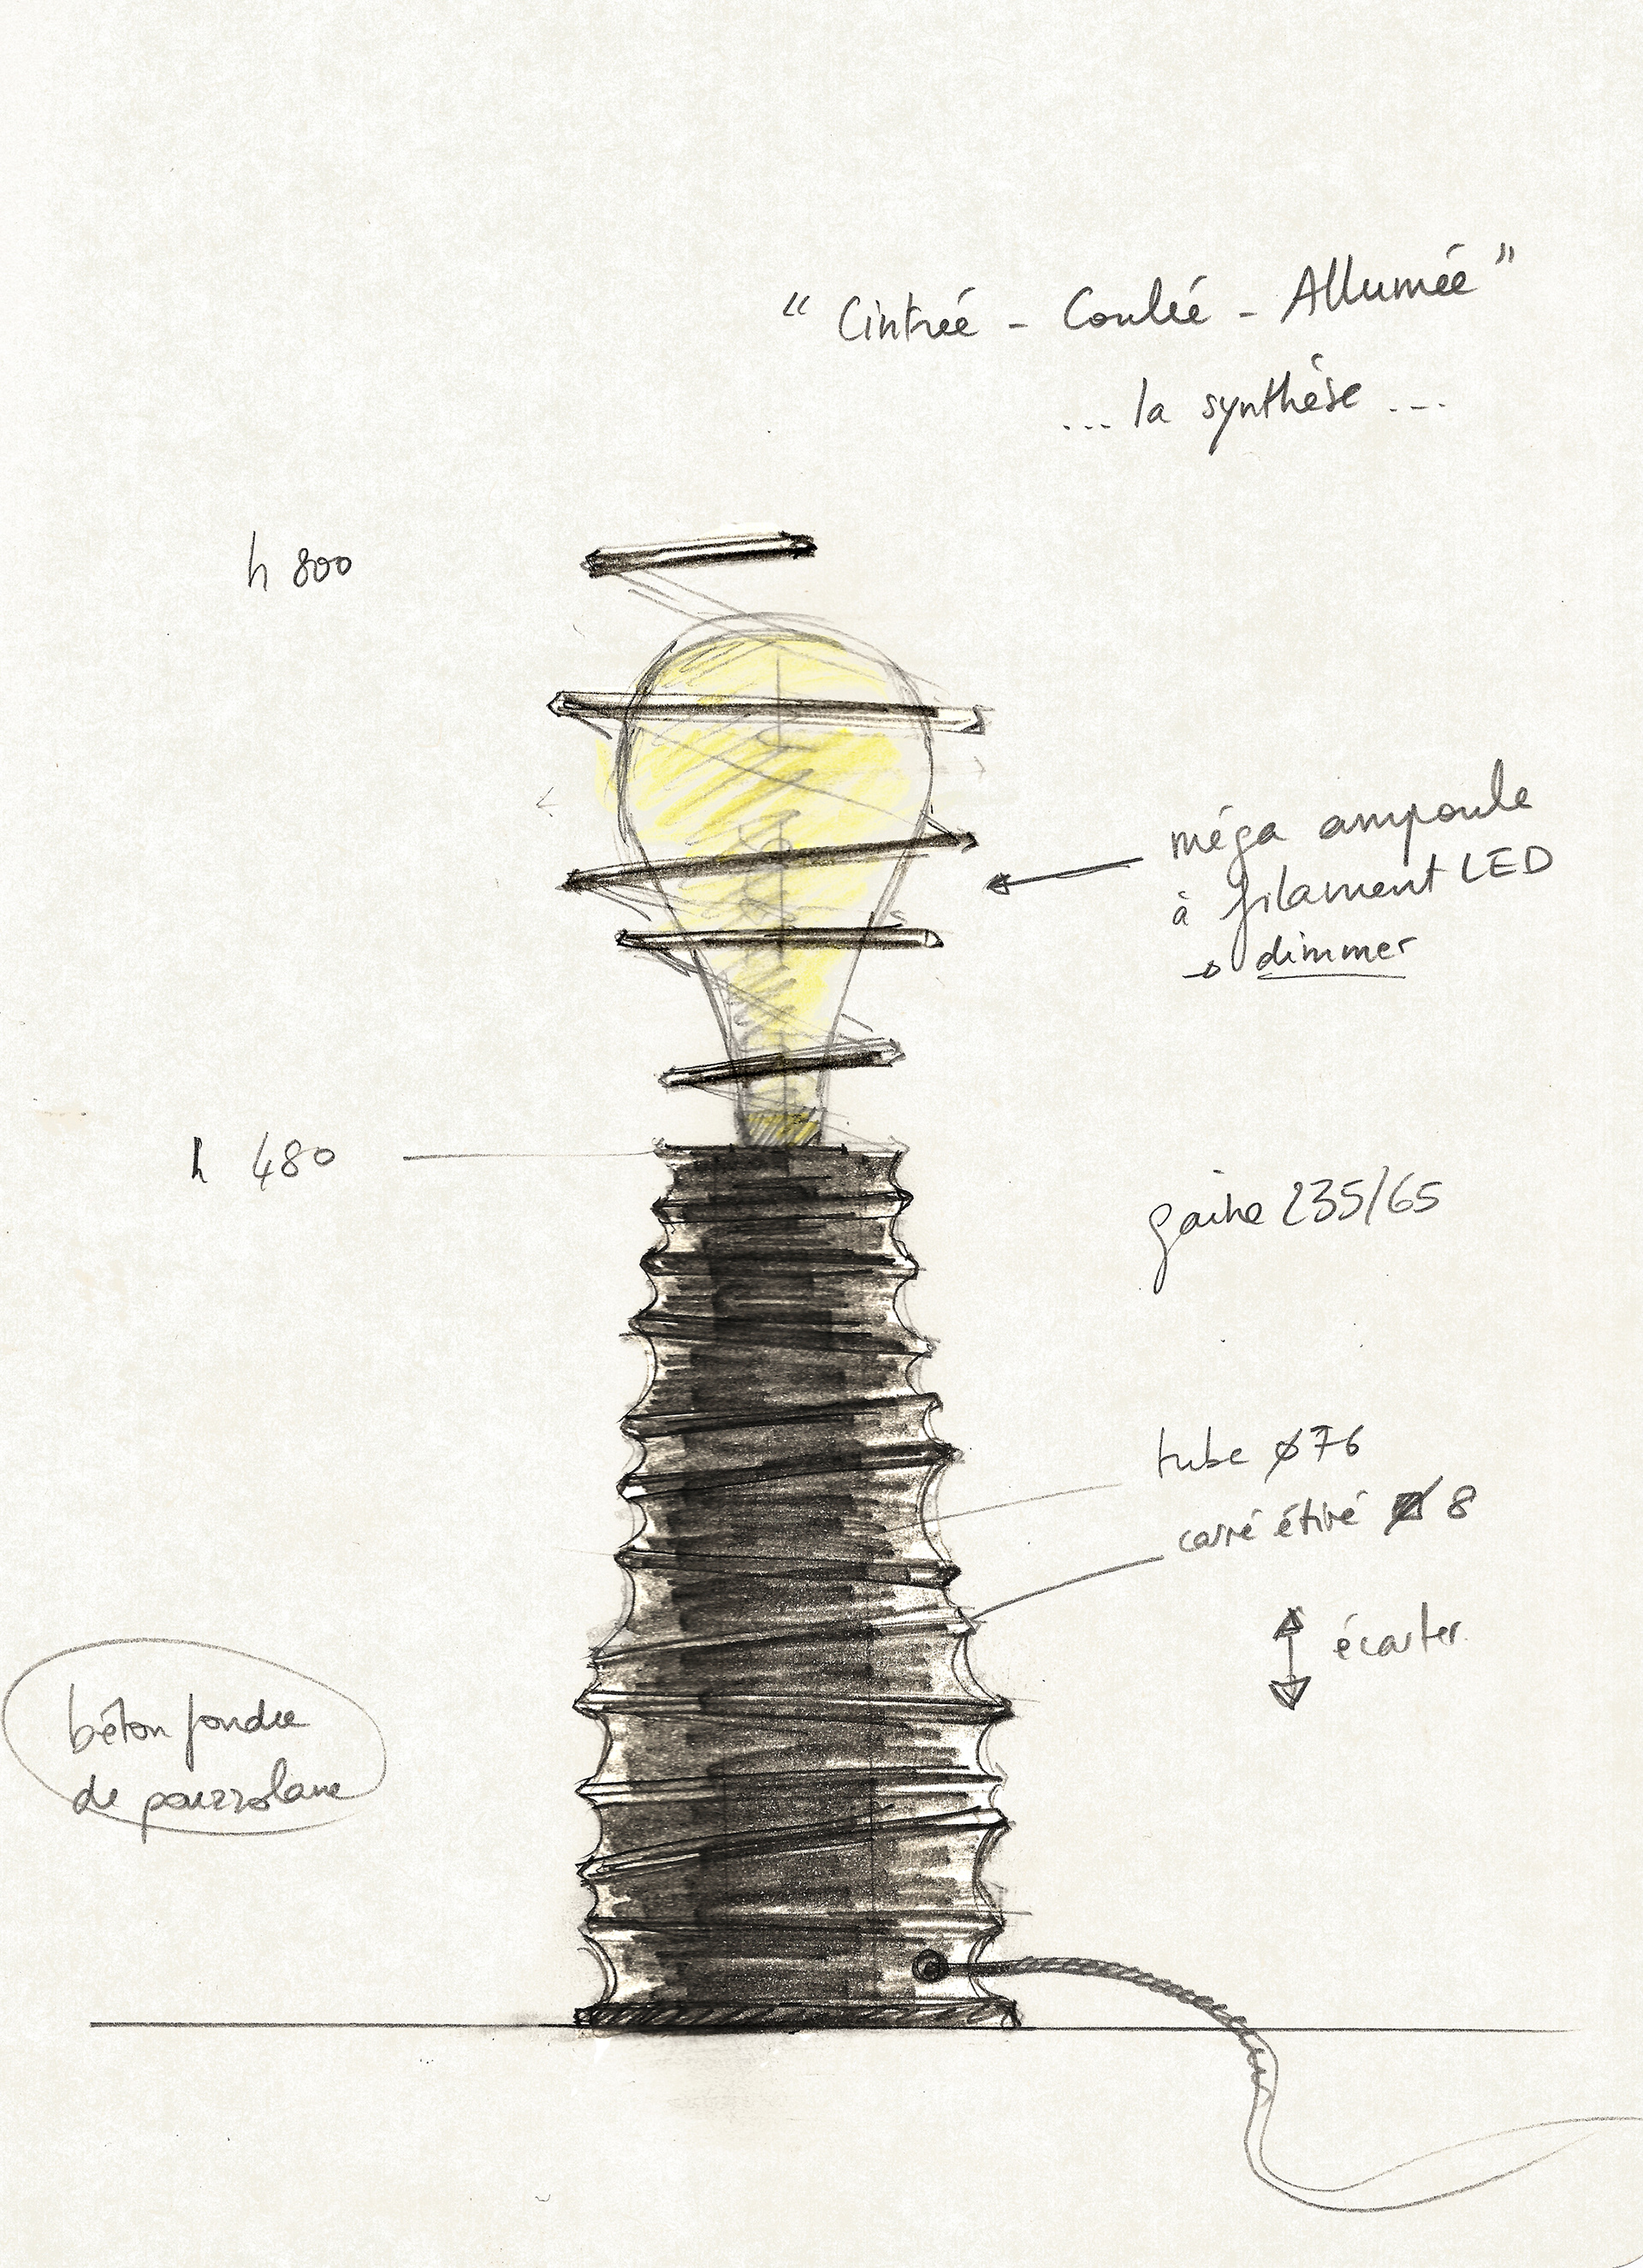 “ Cintrée - Coulée - Allumée ”
... la synthèse ...
h 800
méga ampoule
à filament LED
→ dimmer
h 480
gaine 235/65
tube ø76
carré étiré 8
écarter
béton fondu
de pouzzolane